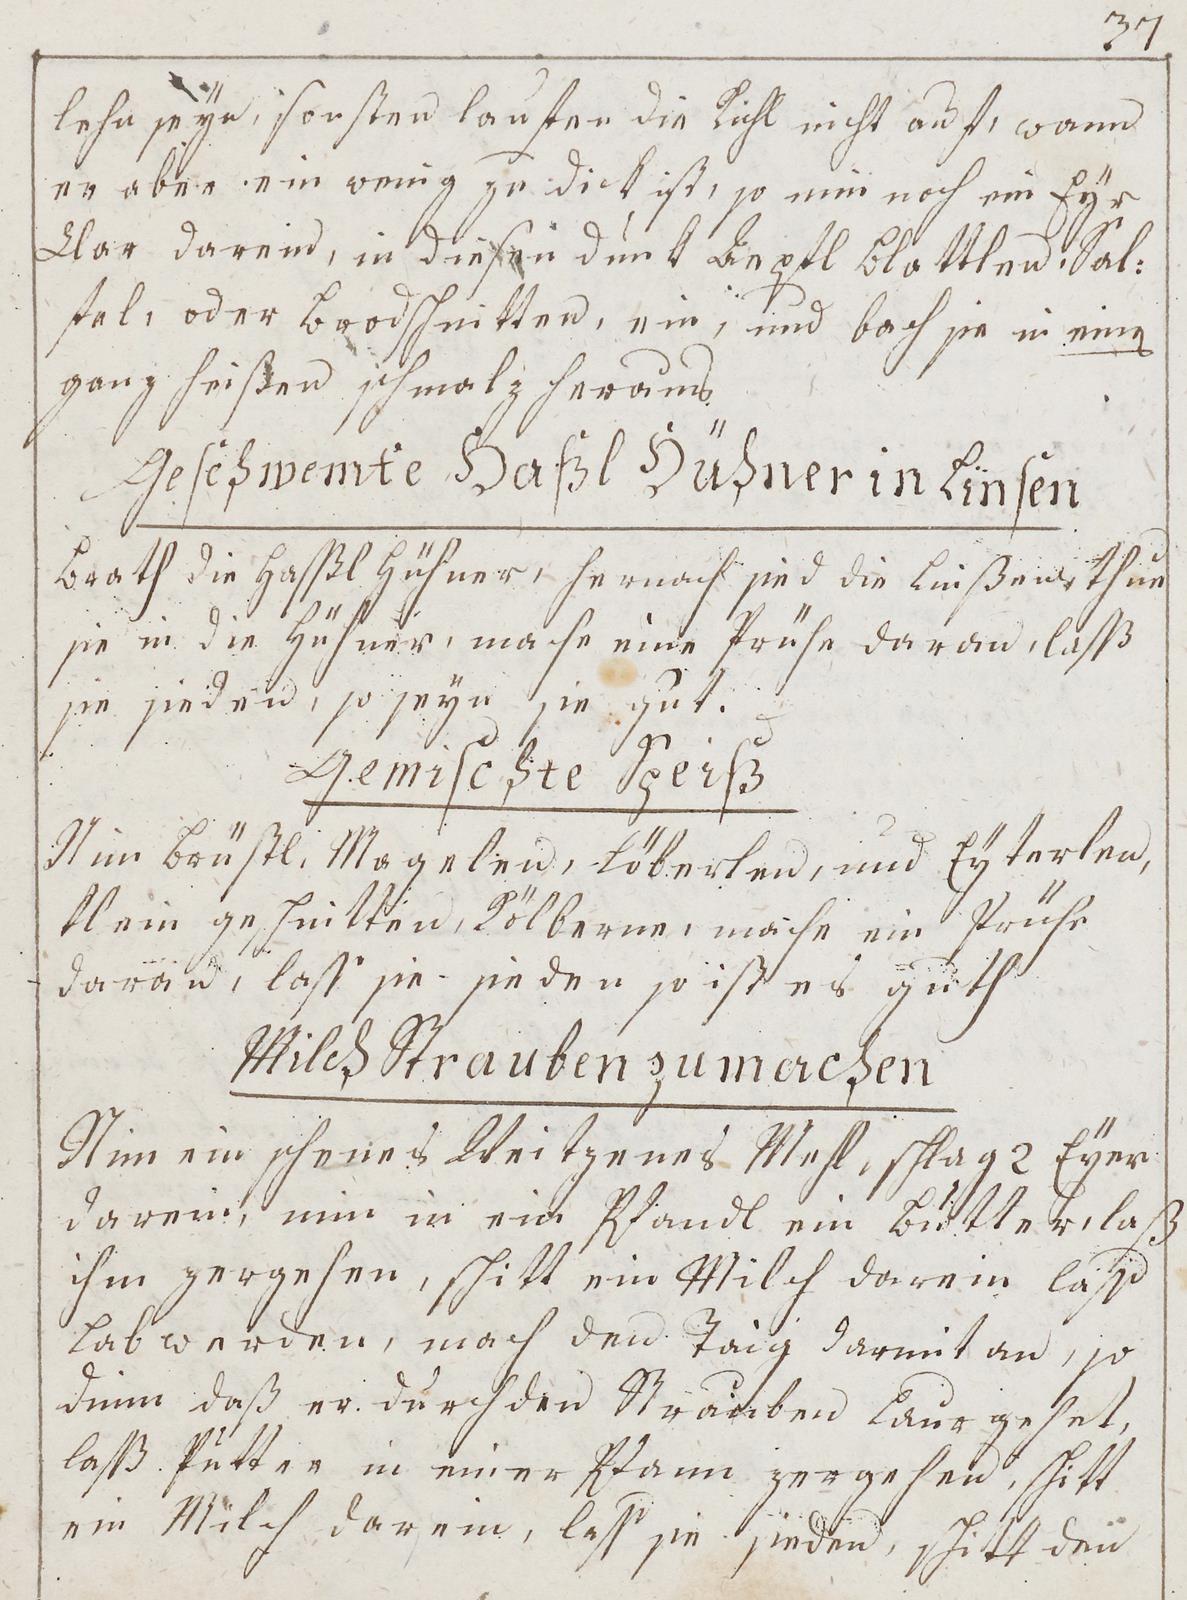 37
lehn seÿn, sonsten lauffen die Kichl nicht auf, wann
er aber ein wenig zu dick ist, so nim noch ein Eÿr
Klar darein, in diesen dunk Aepfl Blattlen, Sal:
fel, oder Brodschnitten, ein, und bach sie in einē
ganz heißen schmalz heraus
Geschwemte Haßl Hühner in Linsen
Brath die Hassßl Hühner, hernach sied die Linßen, thue
sie in die Hühner, mache eine Prühe daran, lassß
sie sieden, so seÿn sie gut.
Gemischte Speiß
Nim Brüstl, Magelen, Löberlen, und Eÿterlen,
klein geschnitten, Kölberne, mache ein Prühe
daran, lass sie sieden so ist es guth
Milch Strauben zu machen
Nim ein schenes Weitzenes Mehl, schlag 2 Eÿer
darein, nim in ein Pfandl ein Butter, laß
ihm zergehen, schitt ein Milch darein lass
Lab werden, mach den Taig darmit an, so
dinn daß er durch den Strauben Laur gehet,
lassß Putter in einer Pfann zergehen, schitt
ein Milch darein, lass sie sieden, schitt den